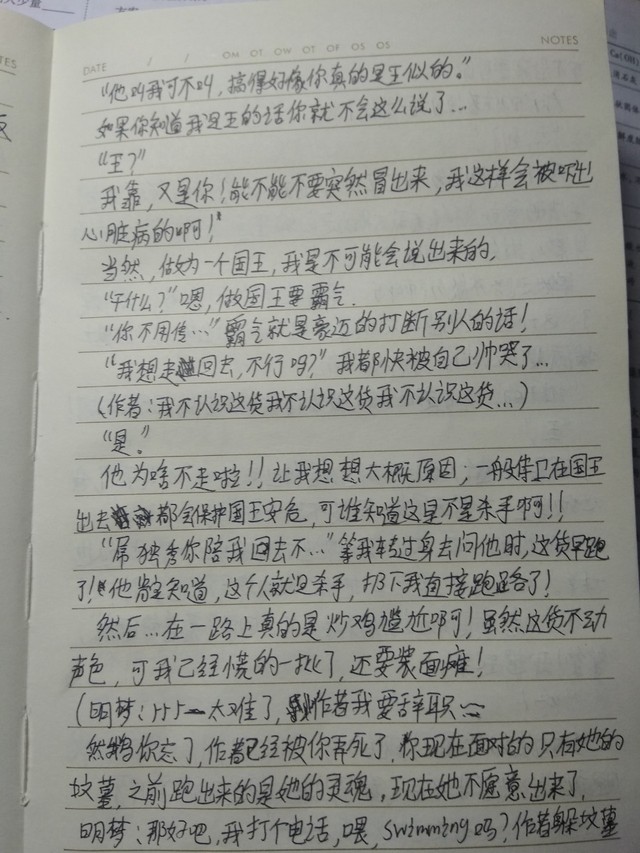 DATE / / OM OT OW OT OF OS OS NOTES
“他叫我可不叫，搞得好像你真的是王似的。”
如果你知道我是王的话你就不会这么说了…
“王？”
我靠，又是你！能不能不要突然冒出来，我这样会被吓出
心脏病的啊！
当然，做为一个国王，我是不可能会说出来的，
“干什么？”嗯，做国王要霸气．
“你不用传…”霸气就是豪迈的打断别人的话！
“我想走回去，不行吗？”我都快被自己帅哭了…
（作者：我不认识这货我不认识这货我不认识这货…）
“是。”
他为啥不走啦！！让我想想大概原因；一般侍卫在国王
出去都会保护国王安危，可谁知道这是不是杀手啊！！
“屌独秀你陪我回去不…”等我转过身去问他时，这货早跑
了！他肯定知道，这个人就是杀手，扔下我直接跑路了！
然后…在一路上真的是炒鸡尴尬啊！虽然这货不动
声色，可我已经慌的一批了，还要装面瘫！
（明梦：太难了，作者我要辞职～
然鹅你忘了，作者已经被你弄死了，你现在面对的只有她的
坟墓，之前跑出来的是她的灵魂，现在她不愿意出来了，
明梦：那好吧，我打个电话，喂，swimming吗？作者躲坟墓
TES
NOTES
Ca(OH)